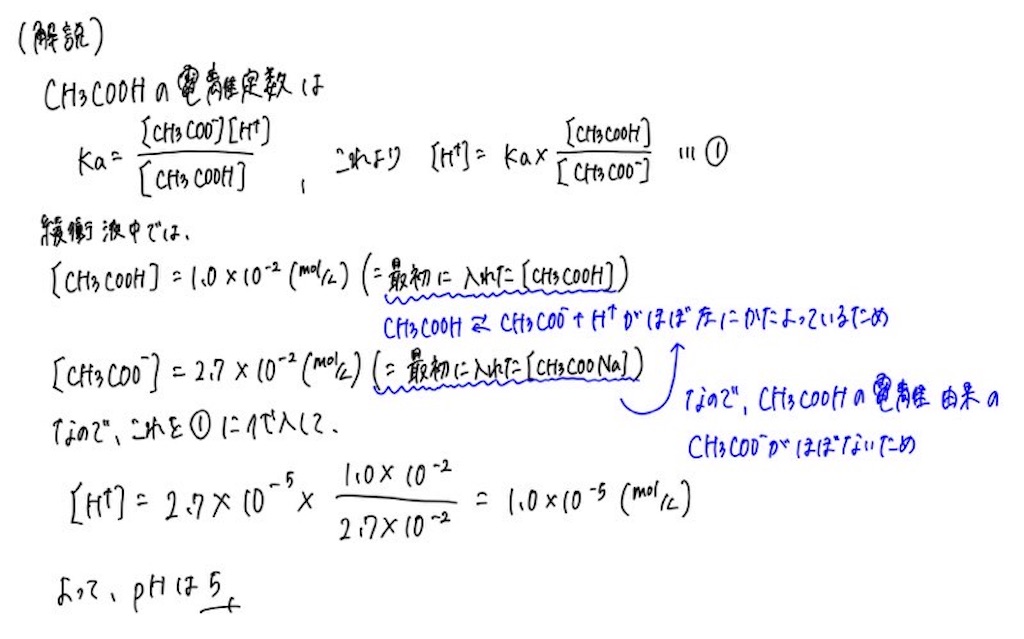 (解説)
CH3COOHの電離定数は
Ka = [CH3COO⁻][H⁺] / [CH3COOH] , これより [H⁺] = Ka × [CH3COOH] / [CH3COO⁻] … ①
緩衝液中では、
[CH3COOH] = 1.0 × 10⁻² (mol/L) (= 最初に入れた[CH3COOH])
CH3COOH ⇄ CH3COO⁻ + H⁺ がほぼ左にかたよっているため
[CH3COO⁻] = 2.7 × 10⁻² (mol/L) (= 最初に入れた[CH3COONa])
なので、CH3COOHの電離由来の
CH3COO⁻がほぼないため
なので、これを①に代入して、
[H⁺] = 2.7 × 10⁻⁵ × 1.0 × 10⁻² / 2.7 × 10⁻² = 1.0 × 10⁻⁵ (mol/L)
よって、pHは5